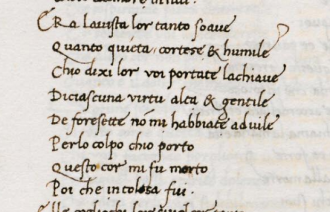 ERa lauista lor tanto soaue
Quanto quieta cortese & humile
Chio dixi lor voi portate lachiaue
Diciascuna virtu alta & gentile
De foresette nō mi habbiate aduile
Perlo colpo chio porto
Questo cor mi fu morto
Poi che intolosa fui.